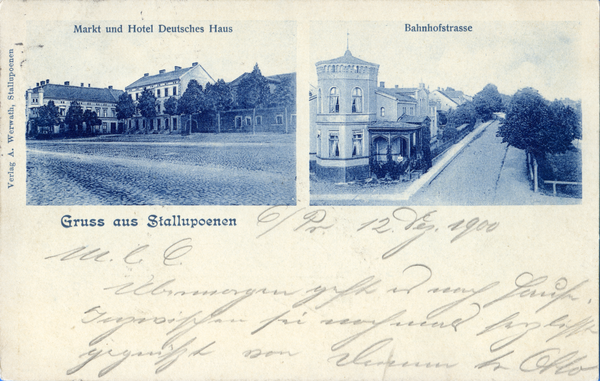 Markt und Hotel Deutsches Haus
Bahnhofstrasse
Verlag A. Werwath, Stallupoenen
Gruss aus Stallupoenen
O/Pr. 12. Dez. 1900
M. l. C.
Übermorgen geht es nach Hause.
Inzwischen sei nochmals herzlichst
gegrüßt von Deinem tr. Otto